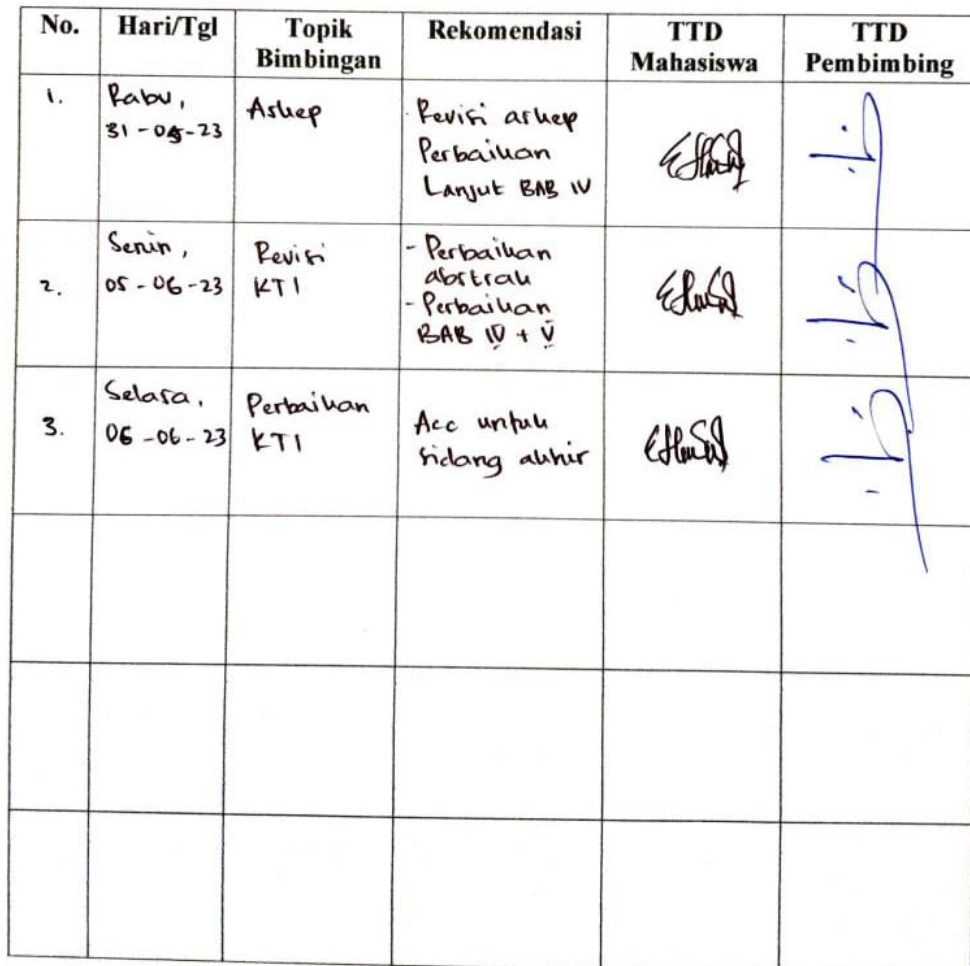 No. Hari/Tgl Topik Bimbingan Rekomendasi TTD Mahasiswa TTD Pembimbing
1. Rabu, 31-05-23 Askep Revisi askep
Perbaikan
Lanjut BAB IV
2. Senin, 05-06-23 Revisi KTI - Perbaikan
abstrak
- Perbaikan
BAB IV + V
3. Selasa, 06-06-23 Perbaikan KTI Acc untuk
sidang akhir